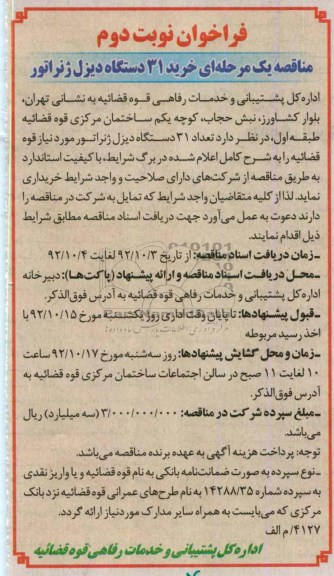 فراخوان نوبت دوم
مناقصه یک مرحله‌ای خرید ۳۱ دستگاه دیزل ژنراتور
اداره کل پشتیبانی و خدمات رفاهی قوه قضائیه به نشانی تهران،
بلوار کشاورز، نبش حجاب، کوچه یکم ساختمان مرکزی قوه قضائیه
طبقه اول، در نظر دارد تعداد ۳۱ دستگاه دیزل ژنراتور مورد نیاز قوه
قضائیه را به شرح کامل اعلام شده در برگ شرایط، با کیفیت استاندارد
به طریق مناقصه از شرکت‌های دارای صلاحیت و واجد شرایط خریداری
نماید. لذا از کلیه متقاضیان واجد شرایط که تمایل به شرکت در مناقصه را
دارند دعوت به عمل می‌آورد جهت دریافت اسناد مناقصه مطابق شرایط
ذیل اقدام نمایند.
ـ زمان دریافت اسناد مناقصه: از تاریخ ۹۲/۱۰/۳ لغایت ۹۲/۱۰/۴
ـ محل دریافت اسناد مناقصه و ارائه پیشنهاد (پاکت‌ها): دبیرخانه
اداره کل پشتیبانی و خدمات رفاهی قوه قضائیه به آدرس فوق‌الذکر.
ـ قبول پیشنهادها: تا پایان وقت اداری روز یکشنبه مورخ ۹۲/۱۰/۱۵ با
اخذ رسید مربوطه
ـ زمان و محل گشایش پیشنهادها: روز سه‌شنبه مورخ ۹۲/۱۰/۱۷ ساعت
۱۰ لغایت ۱۱ صبح در سالن اجتماعات ساختمان مرکزی قوه قضائیه به
آدرس فوق‌الذکر.
ـ مبلغ سپرده شرکت در مناقصه: ۳/۰۰۰/۰۰۰/۰۰۰ (سه میلیارد) ریال
می‌باشد.
توجه: پرداخت هزینه آگهی به عهده برنده مناقصه می‌باشد.
ـ نوع سپرده به صورت ضمانت‌نامه بانکی به نام قوه قضائیه و یا واریز نقدی
به سپرده شماره ۱۴۲۸۸/۳۵ به نام طرح‌های عمرانی قوه قضائیه نزد بانک
مرکزی که می‌بایست به همراه سایر مدارک مورد نیاز ارائه گردد.
۴۱۲۷/م الف
اداره کل پشتیبانی و خدمات رفاهی قوه قضائیه